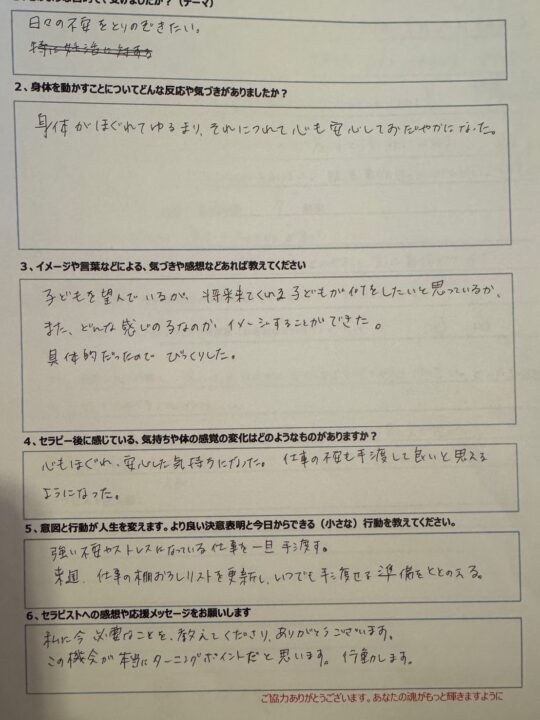 日々の不安をとりのぞきたい。
2、身体を動かすことについてどんな反応や気づきがありましたか？
身体がほぐれてゆるまり、それにつれて心も安心しておだやかになった。
3、イメージや言葉などによる、気づきや感想などあれば教えてください
子どもを望んでいるが、将来来てくれる子どもが何をしたいと思っているか、
また、どんな感じの子なのか イメージすることができた。
具体的だったので びっくりした。
4、セラピー後に感じている、気持ちや体の感覚の変化はどのようなものがありますか？
心もほぐれ、安心した気持ちになった。仕事の不安も手渡して良いと思える
ようになった。
5、意図と行動が人生を変えます。より良い決意表明と今日からできる（小さな）行動を教えてください。
強い不安やストレスになっている仕事を一旦手渡す。
来週、仕事の棚おろしリストを更新し、いつでも手渡せる準備をととのえる。
6、セラピストへの感想や応援メッセージをお願いします
私に今 必要なことを、教えてくださり、ありがとうございます。
この機会が本当にターニングポイントだと思います。行動します。
ご協力ありがとうございます。あなたの魂がもっと輝きますように